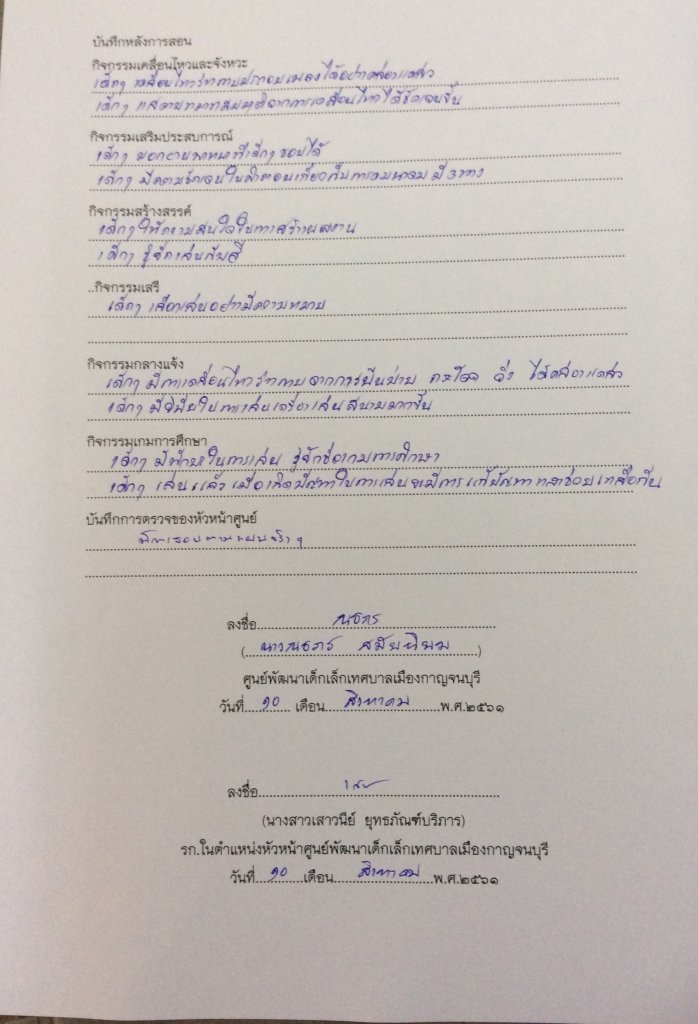 บันทึกหลังการสอน
กิจกรรมเคลื่อนไหวและจังหวะ
เด็กๆ เคลื่อนไหวร่างกายประกอบเพลงได้อย่างคล่องแคล่ว
เด็กๆ แสดงท่าทาง จากการเคลื่อนไหวได้ชัดเจนขึ้น
กิจกรรมเสริมประสบการณ์
เด็กๆ บอกยานพาหนะที่เด็กๆ ชอบได้
เด็กๆ มีความชัดเจนในคำตอบเกี่ยวกับการคมนาคม มี 3 ทาง
กิจกรรมสร้างสรรค์
เด็กๆ ให้ความสนใจในการสร้างผลงาน
เด็กๆ รู้จักเล่นกับสี
..กิจกรรมเสรี
เด็กๆ เลือกเล่นอย่างมีความหมาย
กิจกรรมกลางแจ้ง
เด็กๆ มีการเคลื่อนไหวร่างกายจากการปีนป่าย กระโดด วิ่ง ได้คล่องแคล่ว
เด็กๆ มีวินัยในการเล่นเครื่องเล่นสนามมากขึ้น
กิจกรรมเกมการศึกษา
เด็กๆ มีทักษะในการเล่น รู้จักชื่อเกมการศึกษา
เด็กๆ เล่นแล้ว เมื่อเกิดปัญหาในการเล่นจะมีการแก้ปัญหา หาช่วยเหลือกัน
บันทึกการตรวจของหัวหน้าศูนย์
ลงชื่อ
(นางณธกร)
ศูนย์พัฒนาเด็กเล็กเทศบาลเมืองกาญจนบุรี
วันที่ ๑๐ เดือน สิงหาคม พ.ศ.๒๕๖๑
ลงชื่อ
(นางสาวเสาวนีย์ ยุทธภัณฑ์บริภาร)
รก.ในตำแหน่งหัวหน้าศูนย์พัฒนาเด็กเล็กเทศบาลเมืองกาญจนบุรี
วันที่ ๑๐ เดือน สิงหาคม พ.ศ.๒๕๖๑